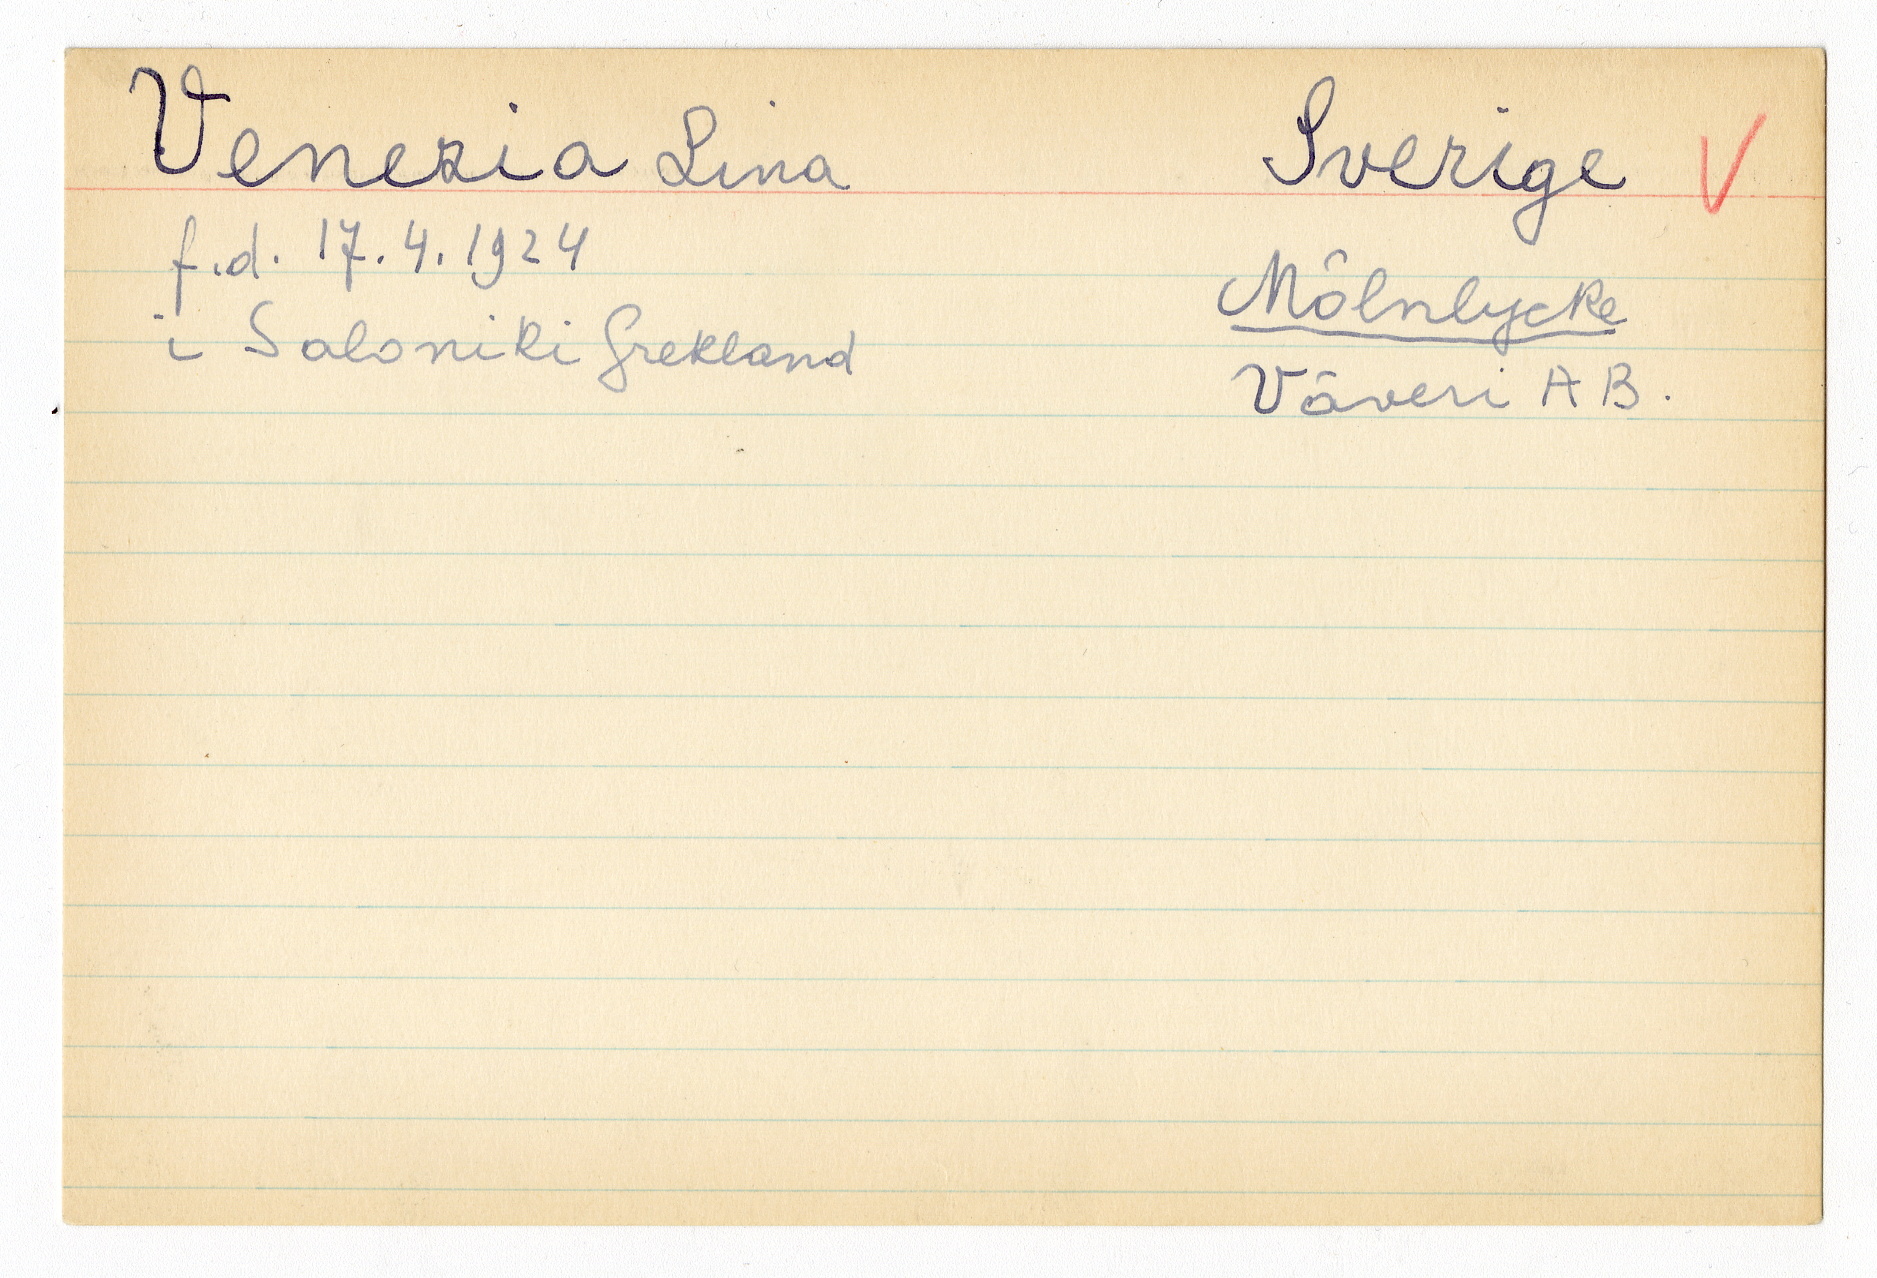 Venezia Lina
Sverige V
f.d. 17.4.1924
i Saloniki Grekland
Mölnlycke
Väveri AB.